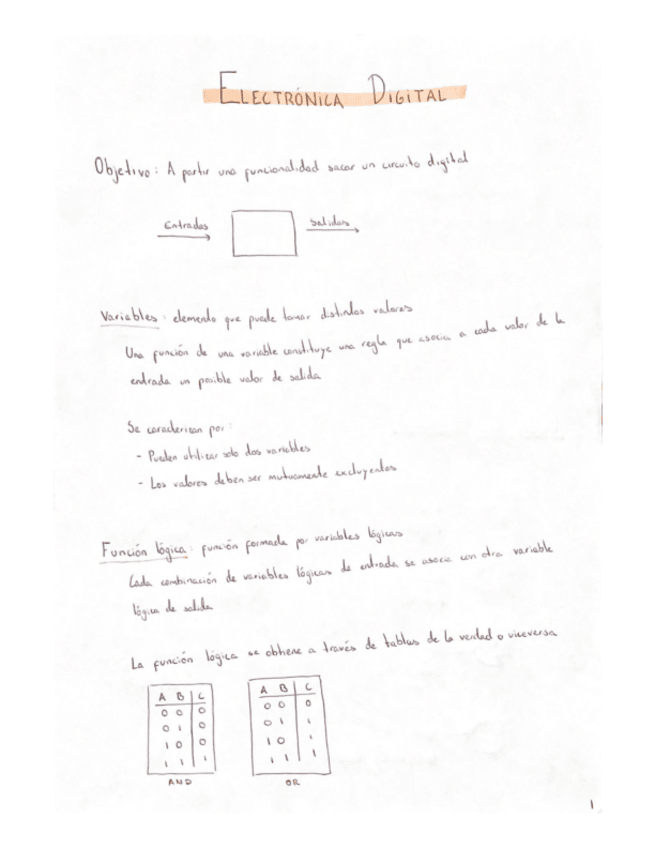 ELECTRÓNICA DIGITAL
Objetivo: A partir una funcionalidad sacar un circuito digital
Entradas Salidas
Variables: elemento que puede tomar distintos valores
Una función de una variable constituye una regla que asocia a cada valor de la
entrada un posible valor de salida
Se caracterizan por:
- Pueden utilizar solo dos variables
- Los valores deben ser mutuamente excluyentes
Función lógica: función formada por variables lógicas
Cada combinación de variables lógicas de entrada se asocia con otra variable
lógica de salida
La función lógica se obtiene a través de tablas de la verdad o viceversa
A B C
0 0 0
0 1 0
1 0 0
1 1 1
AND
A B C
0 0 0
0 1 1
1 0 1
1 1 1
OR
1